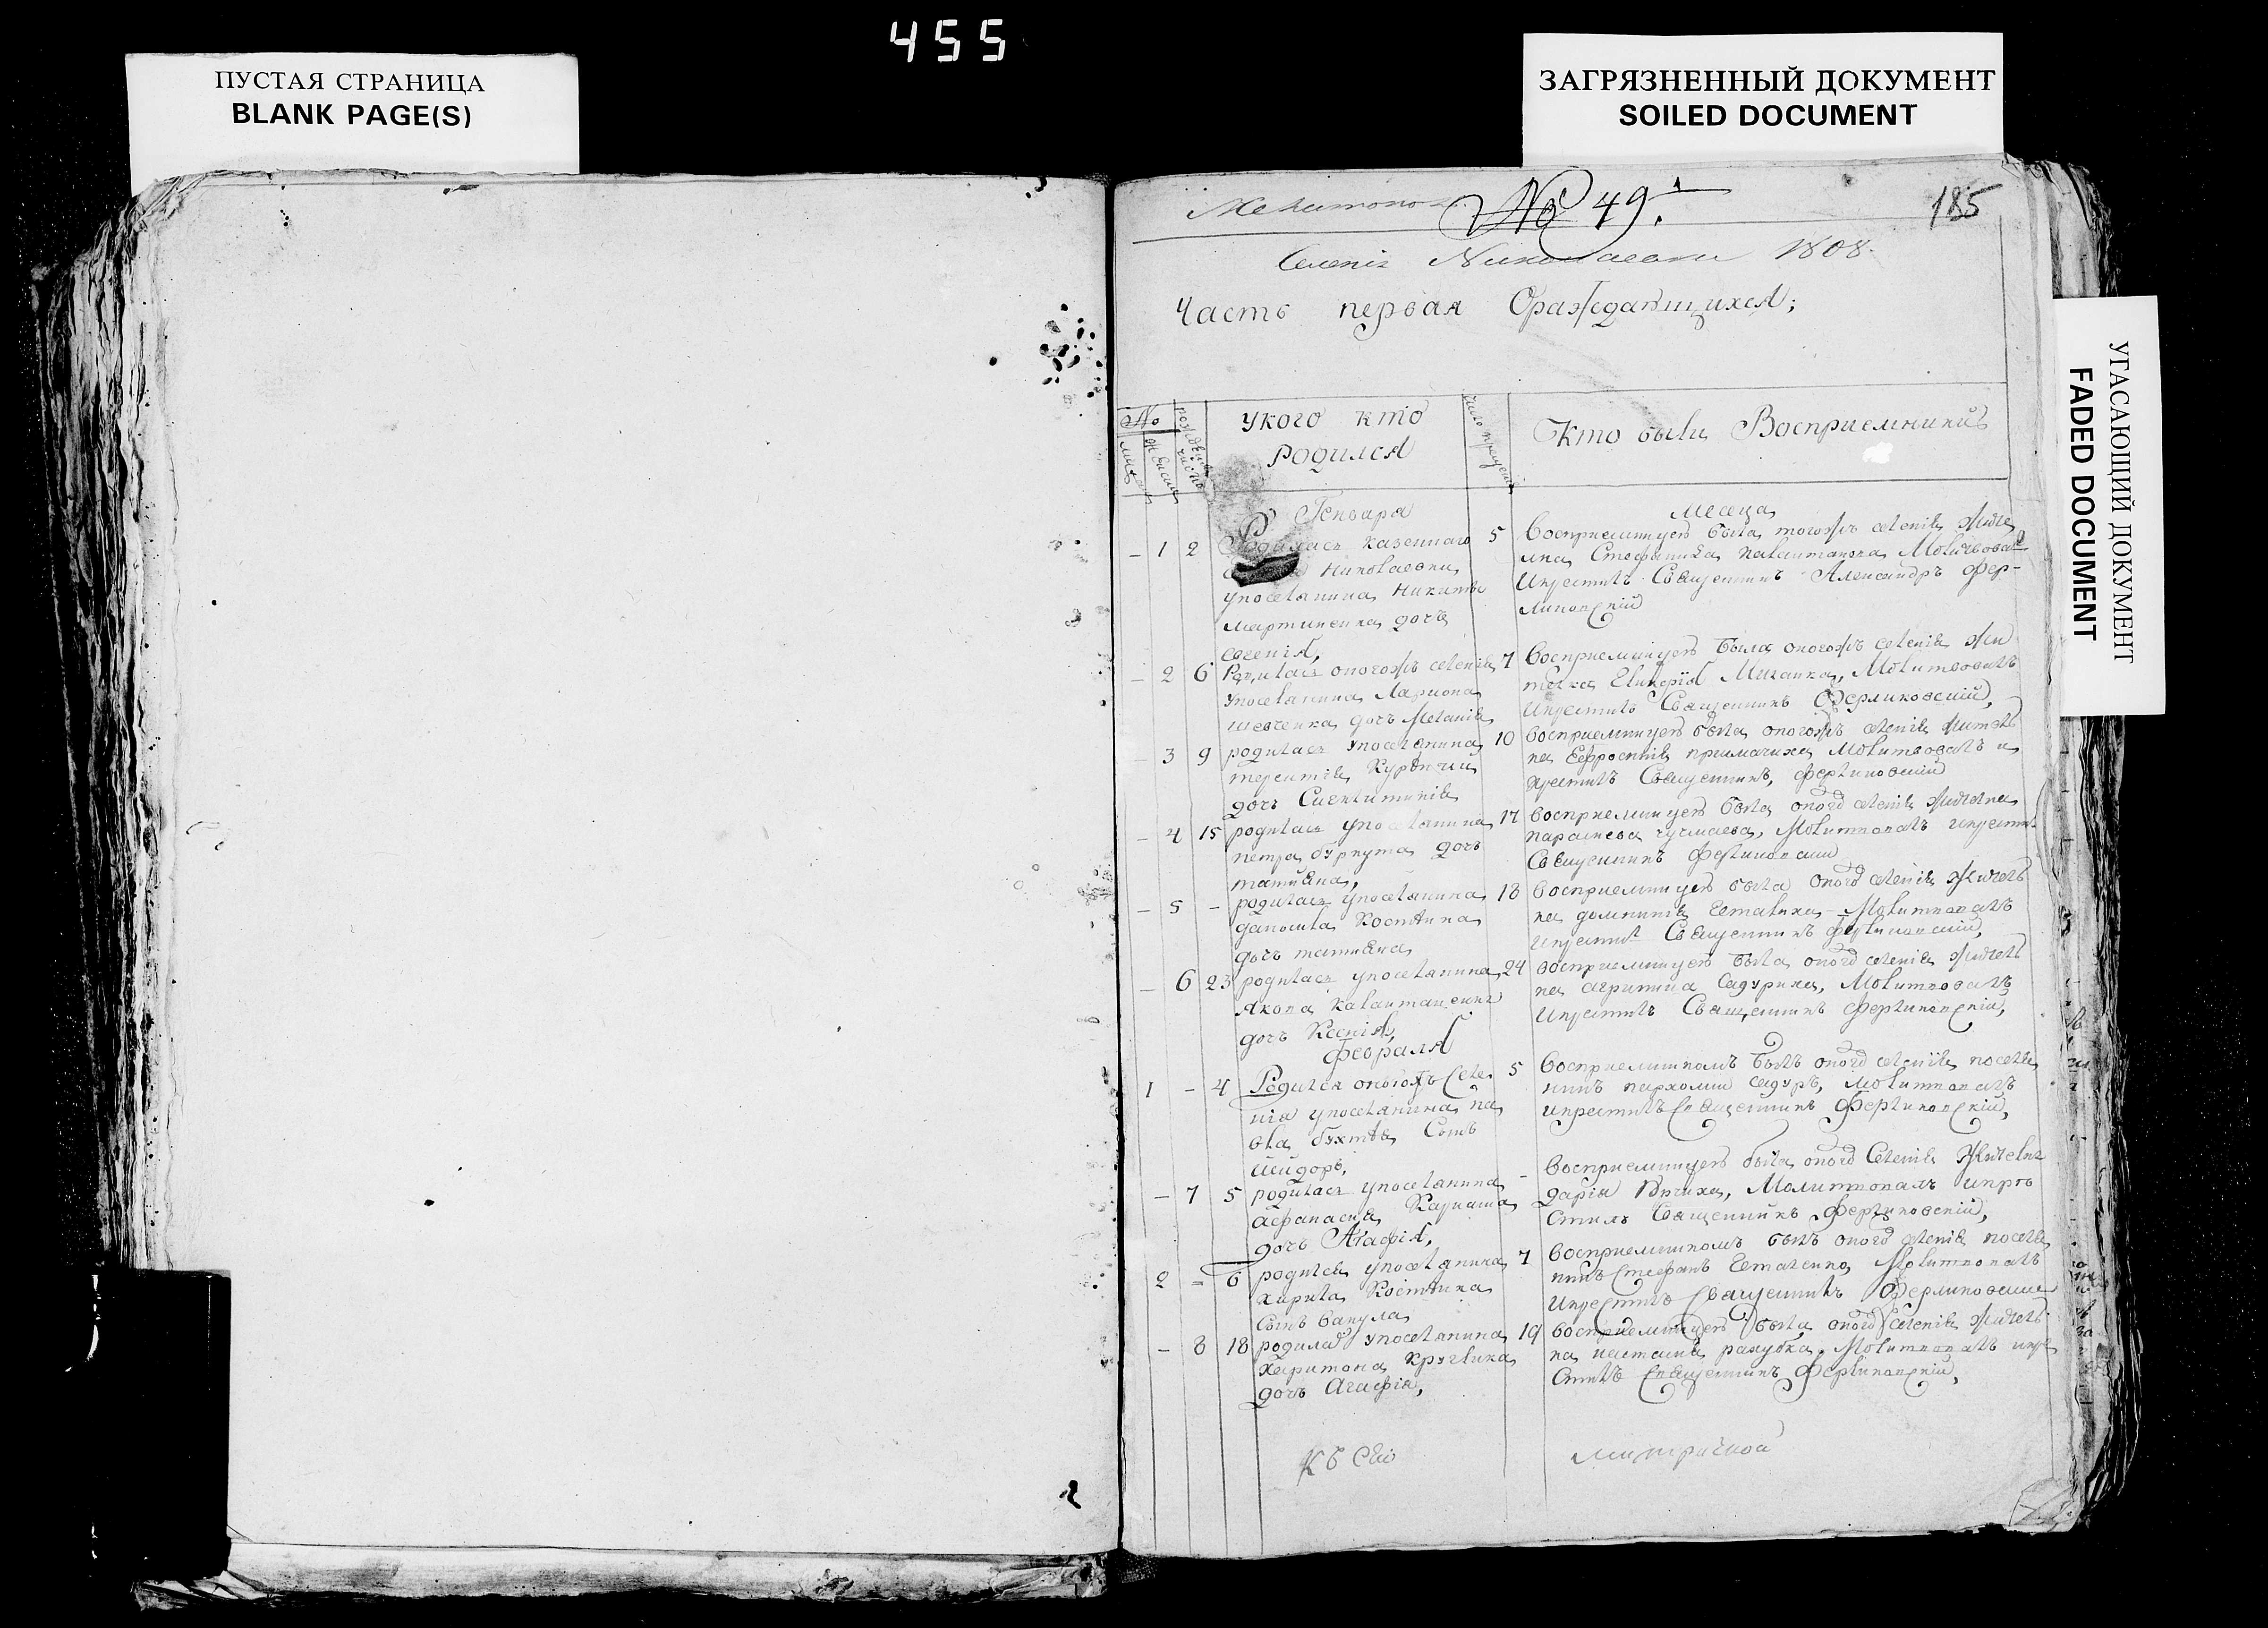 455
ПУСТАЯ СТРАНИЦА
BLANK PAGE(S)
ЗАГРЯЗНЕННЫЙ ДОКУМЕНТ
SOILED DOCUMENT
УГАСАЮЩИЙ ДОКУМЕНТ
FADED DOCUMENT
№ 49.
185
Селенія Николаевки 1808.
Часть первая Ораждающихся;
№
укого кто
родился
Кто были Восприемники
Генваря
месеца
– 1 2
Родилась казеннаго
Николаевки
упоселянина Никиты
мартиненка дочь
евгенія,
5
восприемницею была тогожъ селенія жите
Молитвова
Икрестилъ Священникъ Александръ Фер–
ликовскій
– 2 6
Родилась оногожъ селенія
упоселянина Лариона
шевченка дочь Меланія
7
восприемницею была оногожъ селенія жи
Молитвовалъ
Икрестилъ Священникъ Ферликовскій,
– 3 9
родилась упоселянина
терентія
дочь
10
восприемницею была оногожъ селенія жител
ка Ефросинія примачиха Молитвовалъ и
крестилъ Священникъ, ферликовскій
– 4 15
родилась упоселянина
петра буркута дочь
татияна,
17
восприемницею была оного селенія жителка
Молитвовалъ икрести
Священникъ ферликовскій
– 5 –
родилась упоселянина
данила Костина
дочь татияна
18
восприемницею была оного селенія жител
ка домникія Молитвовалъ
икрестил Священникъ ферликовскій,
– 6 23
родилась упоселянина
Якова Калантаценка
дочь Ксенія,
24
восприемницею была оного селенія жител
ка агрипина Садуриха, Молитвовалъ
Икрестилъ Священникъ ферликовскій,
Февраля
1 – 4
Родился оногожъ Селе
нія упоселянина па
вла бухтія Сынъ
Исидоръ,
5
восприемникомъ былъ оного селенія поселя
нинъ пархомий садуръ, молитвовалъ
икрестилъ Священникъ Ферликовскій,
– 7 5
родилась упоселянина
афанасия Карнауха
дочь Агафія,
–
восприемницею была оного Селенія Жителка
дарія Молитвовалъ икре
стилъ Священникъ Ферликовскій,
2 – 6
родился упоселянина
кирила Костина
Сынъ вакула
7
восприемникомъ былъ оного селенія поселя
нинъ Стефанъ Молитвовалъ
Икрестилъ Священникъ Ферликовский
– 8 18
родилась упоселянина
Харитона Круглика
дочь Агафія,
19
восприемницею была оного селенія жител
ка настасия Молитвовалъ икре
стилъ Священникъ Ферликовскій,
Къ сей
митричной